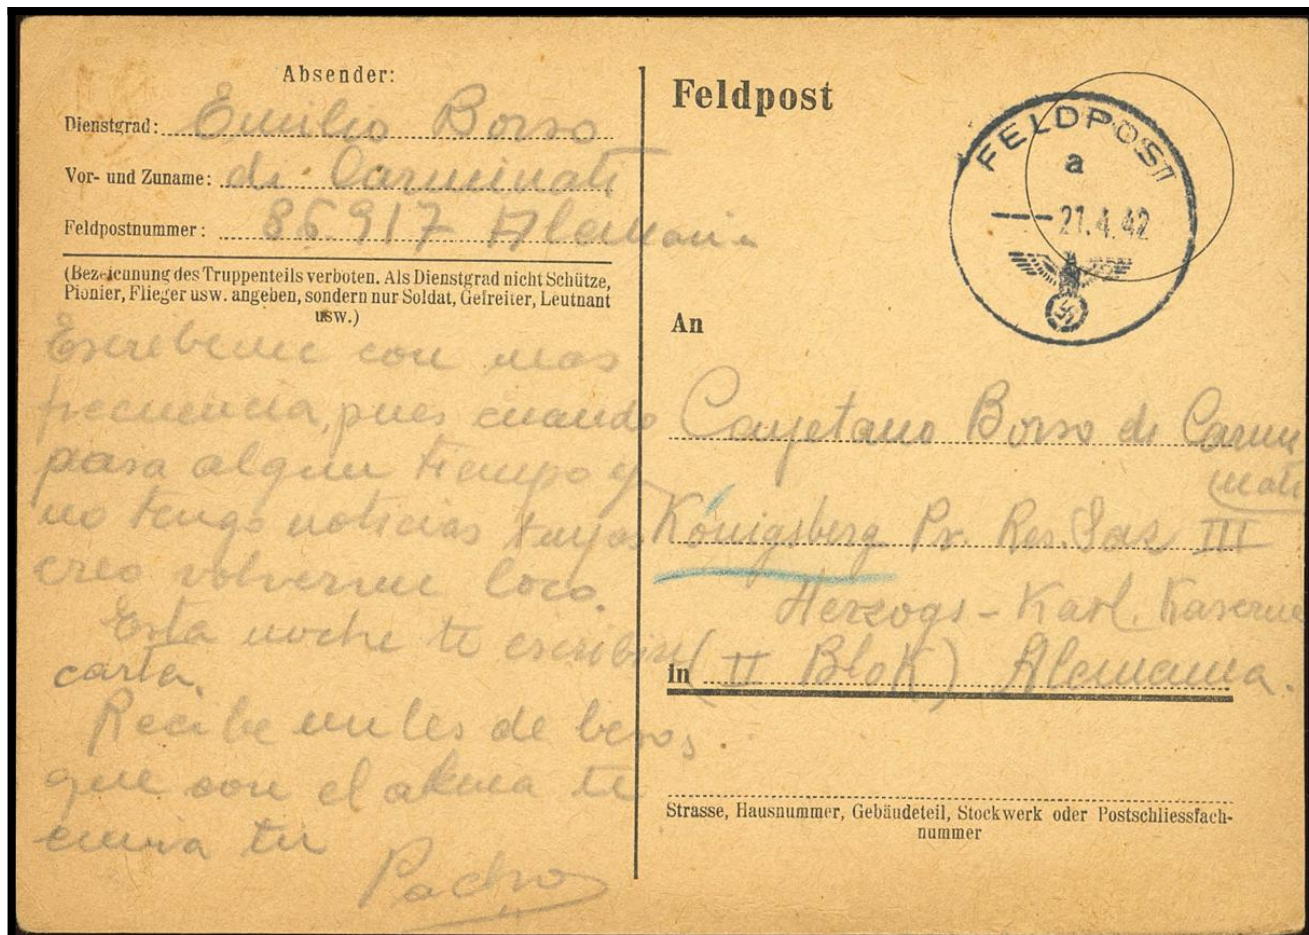 Absender:
Dienstgrad: Emilio Borso
Vor- und Zuname: di Carminati
Feldpostnummer: 86.917 Alemania
(Bezeichnung des Truppenteils verboten. Als Dienstgrad nicht Schütze,
Pionier, Flieger usw. angeben, sondern nur Soldat, Gefreiter, Leutnant
usw.)
Escribeme con mas
frecuencia, pues cuando
pasa algun tiempo y
no tengo noticias tuyas
creo volverme loco.
Esta noche te escribiré
carta.
Recibe miles de besos
que con el alma te
envia tu
Padre
Feldpost
FELDPOST
a
21.4.42
An
Cayetano Borso di Carmi
nati
Königsberg Pr. Res. Laz III
Herzogs-Karl. Kaserne
in (II Blok) Alemania.
Strasse, Hausnummer, Gebäudeteil, Stockwerk oder Postschliessfach-
nummer